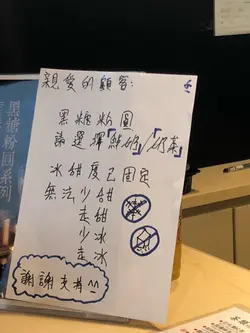 親愛的顧客:
黑糖粉圓
請選擇「鮮奶」/「奶茶」
冰甜度已固定
無法少甜
走甜
少冰
走冰
謝謝支持 ^^
黑糖粉圓系列